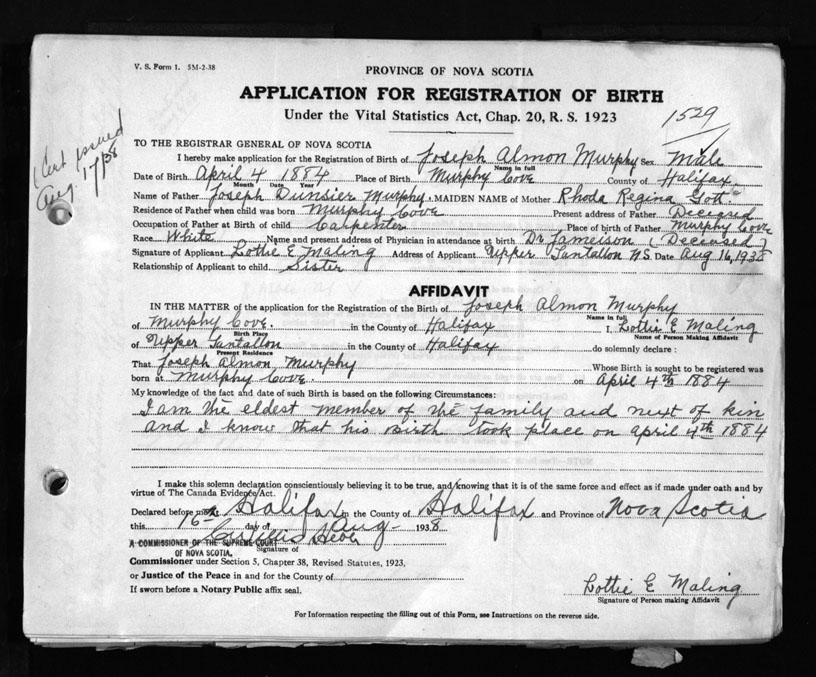 V. S. Form 1. 5M-2-38
PROVINCE OF NOVA SCOTIA
APPLICATION FOR REGISTRATION OF BIRTH
Under the Vital Statistics Act, Chap. 20, R. S. 1923
1529
Cert issued
Aug 17/38
TO THE REGISTRAR GENERAL OF NOVA SCOTIA
I hereby make application for the Registration of Birth of Joseph Almon Murphy Sex Male
Name in full
Date of Birth April 4 1884 Place of Birth Murphy Cove County of Halifax
Month Date Year
Name of Father Joseph Dunsier Murphy. MAIDEN NAME of Mother Rhoda Regina Gott
Residence of Father when child was born Murphy Cove Present address of Father Deceased
Occupation of Father at Birth of child Carpenter Place of birth of Father Murphy Cove
Race White Name and present address of Physician in attendance at birth Dr Jameison (Deceased)
Signature of Applicant Lottie E Maling Address of Applicant Upper Tantallon N.S. Date Aug 16, 1938
Relationship of Applicant to child Sister
AFFIDAVIT
IN THE MATTER of the application for the Registration of the Birth of Joseph Almon Murphy
Name in full
of Murphy Cove. in the County of Halifax I, Lottie E Maling
Birth Place Name of Person Making Affidavit
of Upper Tantallon in the County of Halifax do solemnly declare :
Present Residence
That Joseph Almon Murphy Whose Birth is sought to be registered was
born at Murphy Cove. on April 4th 1884
My knowledge of the fact and date of such Birth is based on the following Circumstances:
I am the eldest member of the family and next of kin
and I know that his Birth took place on April 4th 1884
I make this solemn declaration conscientiously believing it to be true, and knowing that it is of the same force and effect as if made under oath and by
virtue of The Canada Evidence Act.
Declared before me at Halifax in the County of Halifax and Province of Nova Scotia
this 16 day of Aug 1938
A COMMISSIONER OF THE SUPREME COURT
OF NOVA SCOTIA.
Signature of
Commissioner under Section 5, Chapter 38, Revised Statutes, 1923,
or Justice of the Peace in and for the County of
If sworn before a Notary Public affix seal.
Lottie E Maling
Signature of Person making Affidavit
For Information respecting the filling out of this Form, see Instructions on the reverse side.